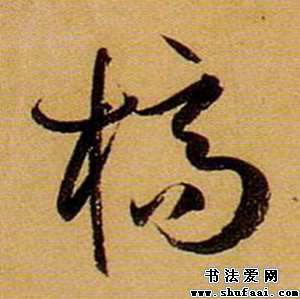 槁
书法爱网
www.shufaai.com